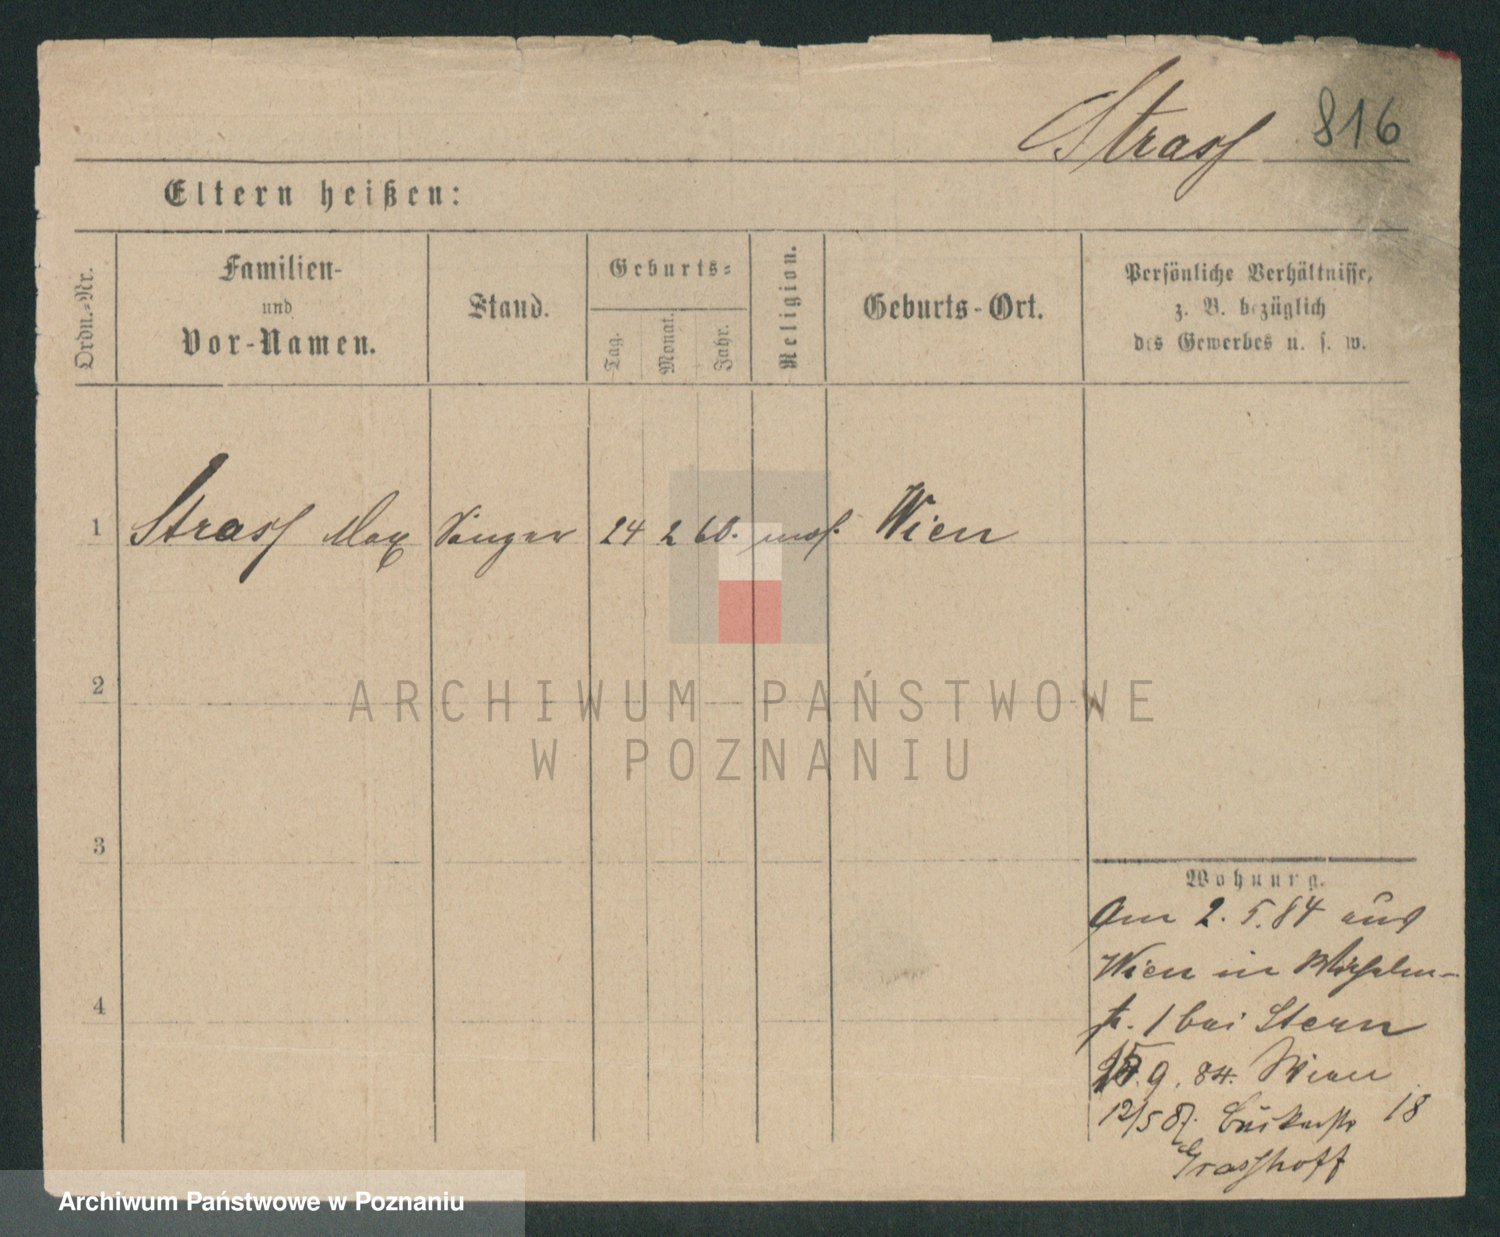 Strass 816
Eltern heißen:
Ordn.-Nr.
Familien-
und
Vor-Namen.
Stand.
Geburts-
Tag.
Monat.
Jahr.
Religion.
Geburts-Ort.
Persönliche Verhältnisse,
z. B. bezüglich
des Gewerbes u. s. w.
1 Strass Max Sänger 24 2 60. mos. Wien
2
3
4
Wohnung.
Am 2. 5. 84 aus
Wien in Wilhelm-
str. 1 bei Stern
9. 84. Wien
12/5 87. 18
Grasshoff
ARCHIWUM PAŃSTWOWE
W POZNANIU
Archiwum Państwowe w Poznaniu